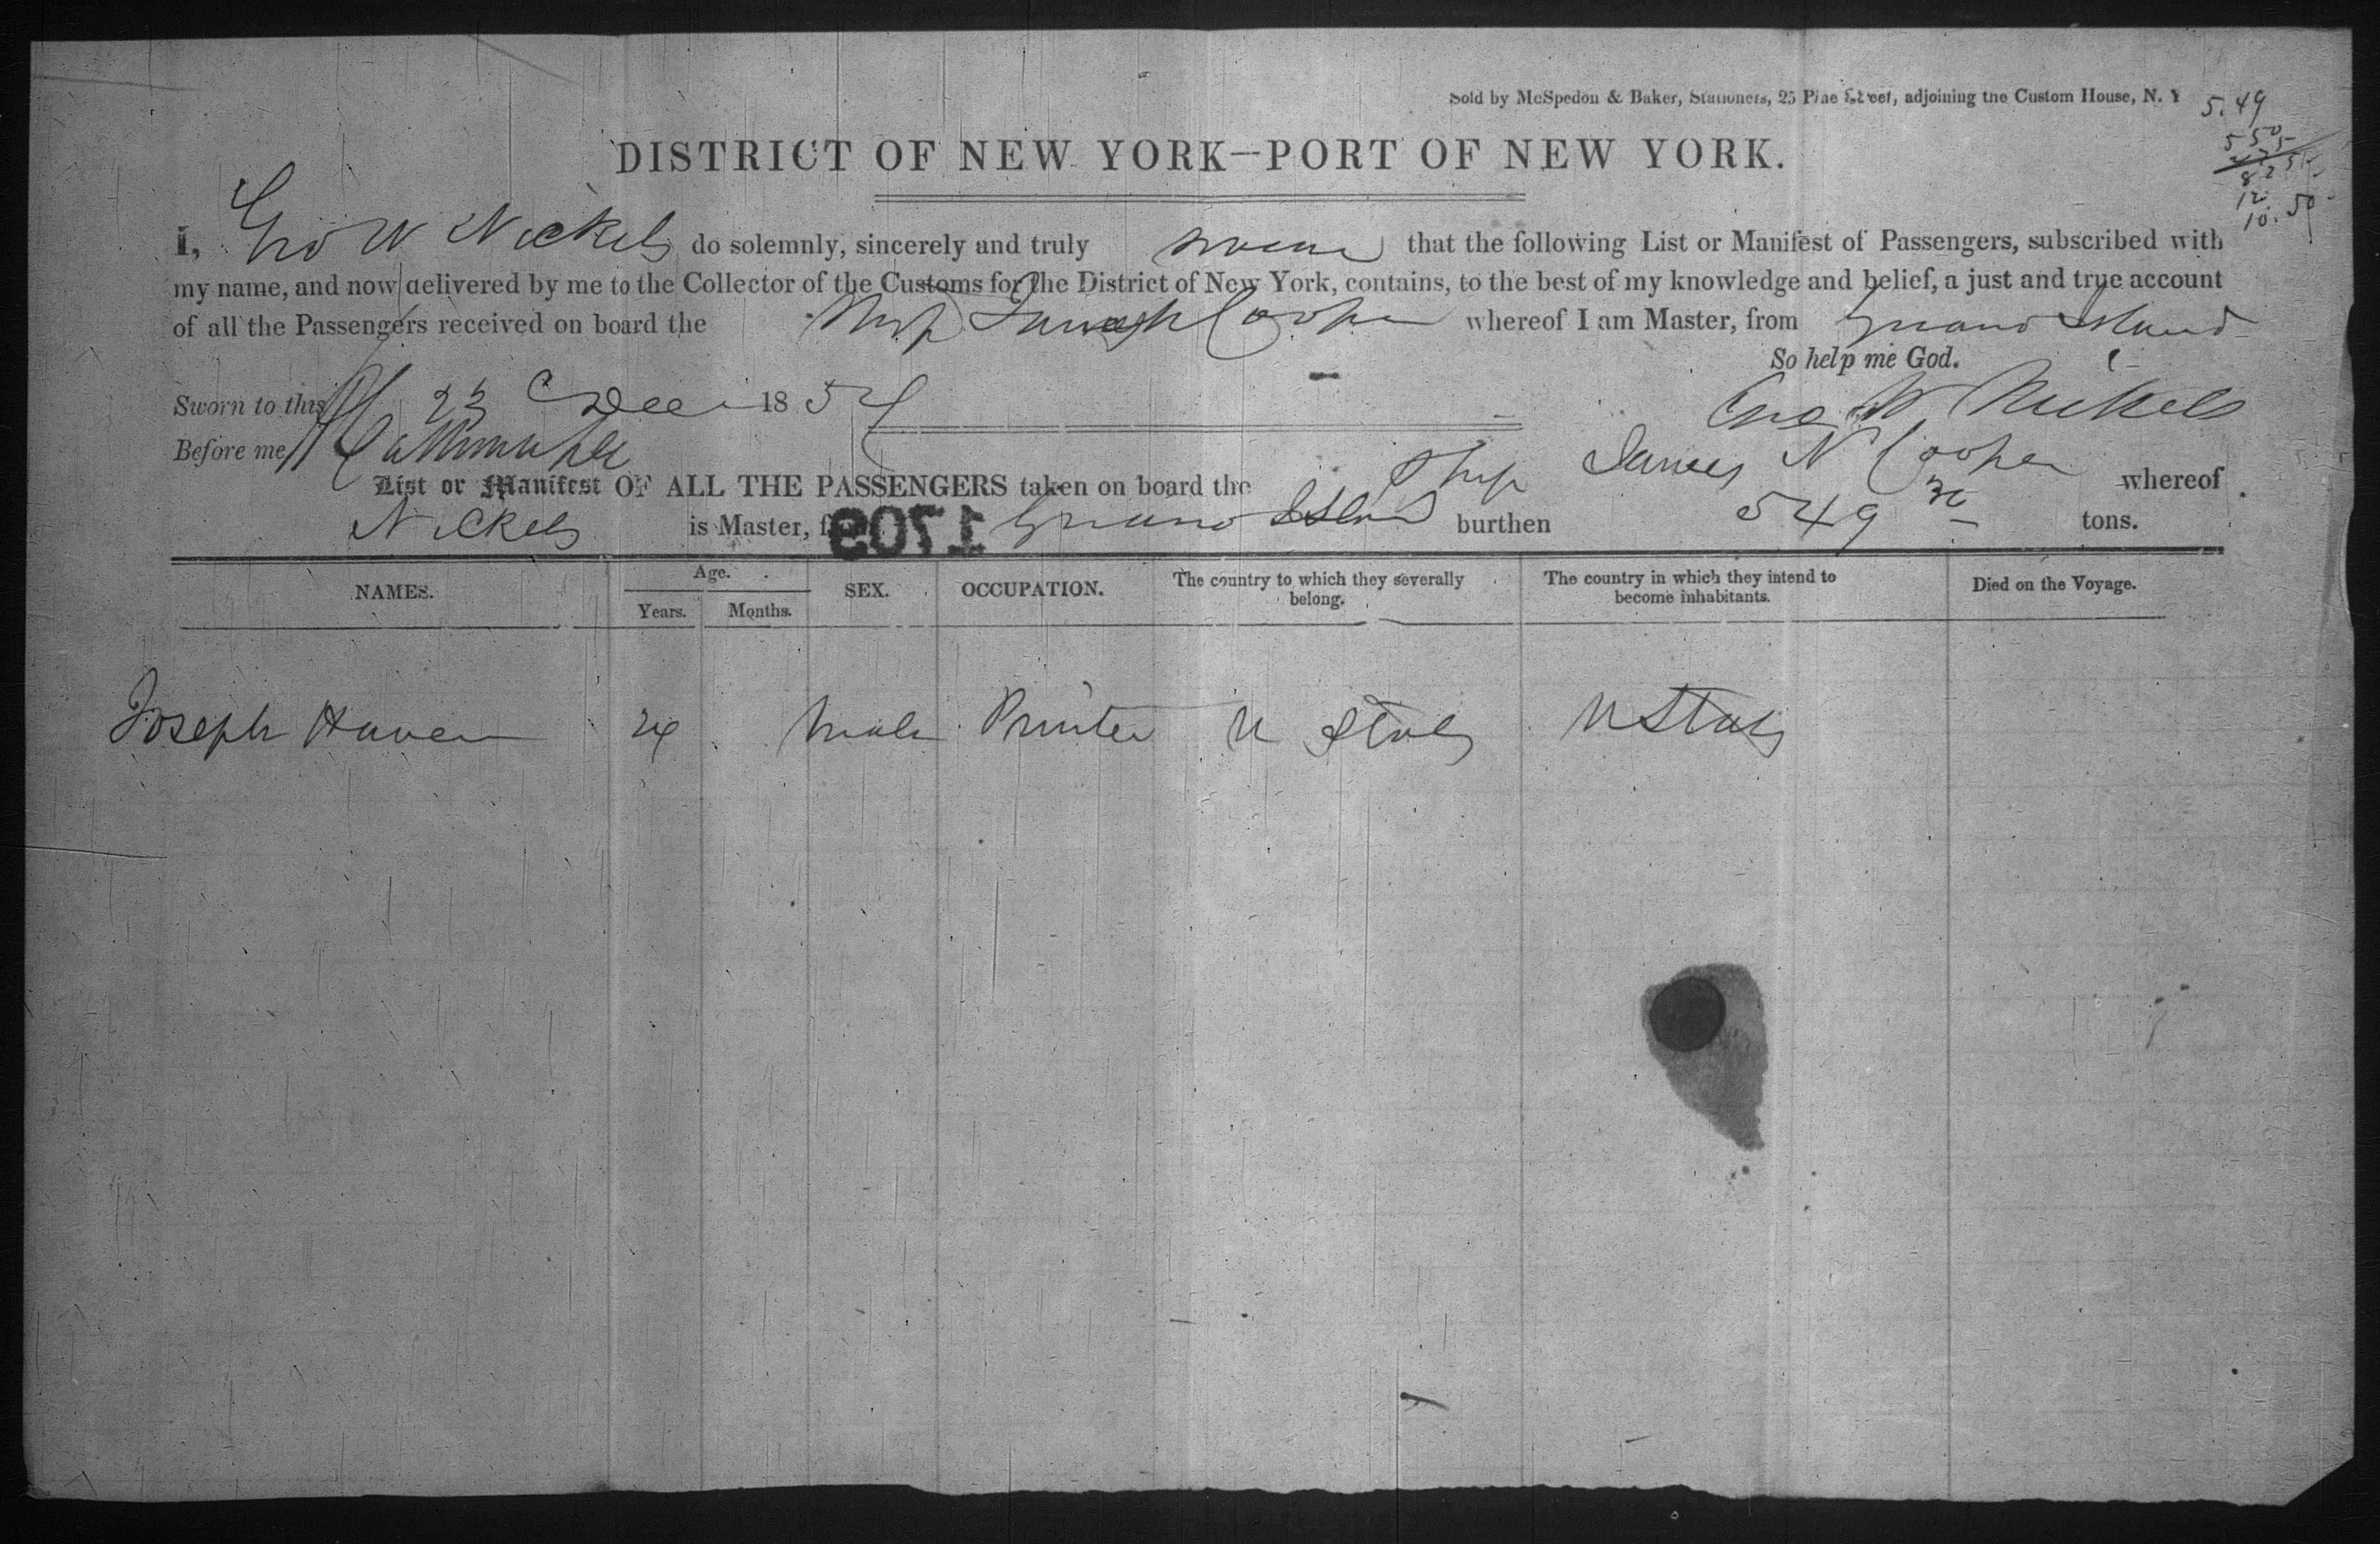 Sold by McSpedon & Baker, Stationers, 25 Pine Street, adjoining the Custom House, N. Y
5.49
DISTRICT OF NEW YORK—PORT OF NEW YORK.
10.50
I, Geo W Nickels do solemnly, sincerely and truly swear that the following List or Manifest of Passengers, subscribed with
my name, and now delivered by me to the Collector of the Customs for the District of New York, contains, to the best of my knowledge and belief, a just and true account
of all the Passengers received on board the Ship James N Cooper whereof I am Master, from Guano Island
So help me God.
Sworn to this 23 Dec 1854
Geo W Nickels
Before me
List or Manifest OF ALL THE PASSENGERS taken on board the Ship James N Cooper whereof
Nickels is Master, 1709 Guano Island burthen 549 tons.
NAMES. Age. Years. Months. SEX. OCCUPATION. The country to which they severally belong. The country in which they intend to become inhabitants. Died on the Voyage.
Joseph Haven 24 Male Printer U States U States